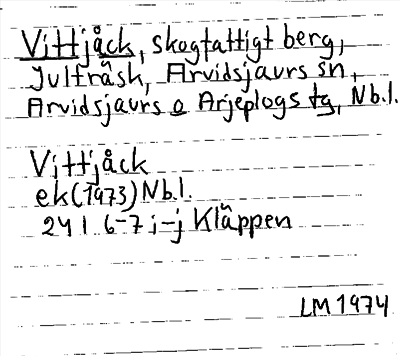 Vittjåck, skogfattigt berg,
Jultråsk, Arvidsjaurs sn,
Arvidsjaurs o Arjeplogs tg, Nb.l.
Vittjåck
ek (1973) Nb.l.
24 I 6-7 i-j Kläppen
LM 1974